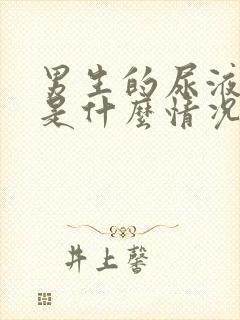 男生的尿液
是什麼情況
井上馨